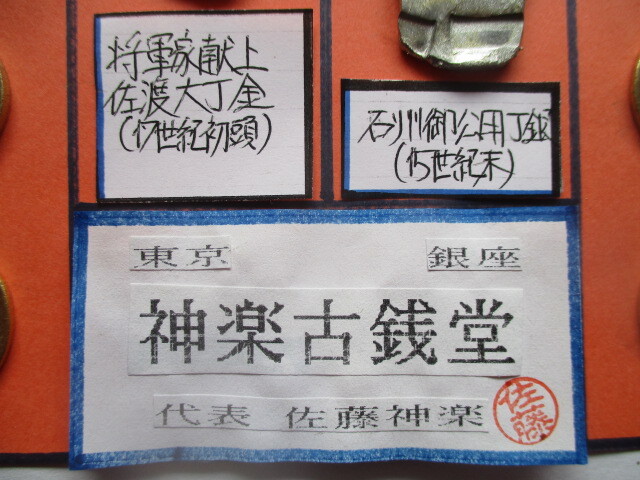 将軍家献上
佐渡大丁金
(17世紀初頭)
石川御公用丁銀
(15世紀末)
東京 銀座
神楽古銭堂
代表 佐藤神楽
佐藤